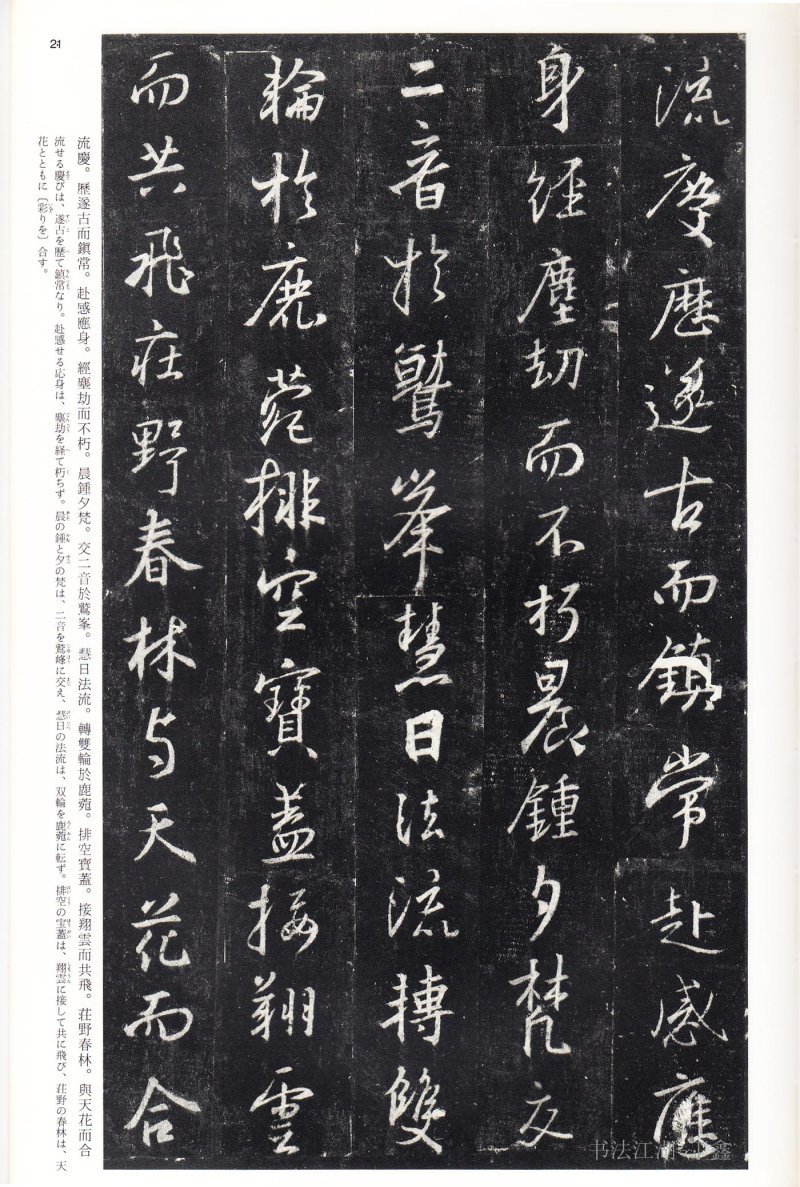 流慶歷遂古而鎮常赴感應
身經塵劫而不朽晨鍾夕梵交
二音於鷲峯慧日法流轉雙
輪於鹿菀排空寶盖接翔雲
而共飛莊野春林与天花而合
流慶。歷遂古而鎭常。赴感應身。經塵劫而不朽。晨鍾夕梵。交二音於鷲峯。慧日法流。轉雙輪於鹿菀。排空寶蓋。接翔雲而共飛。莊野春林。與天花而合
流せる慶びは、遂古を歴て鎮常なり。赴感せる応身は、塵劫を経て朽ちず。晨の鍾と夕の梵は、二音を鷲峰に交え、慧日の法流は、双輪を鹿菀に転ず。排空の宝蓋は、翔雲に接して共に飛び、荘野の春林は、天
花とともに〔彩りを〕合す。
21
书法江湖